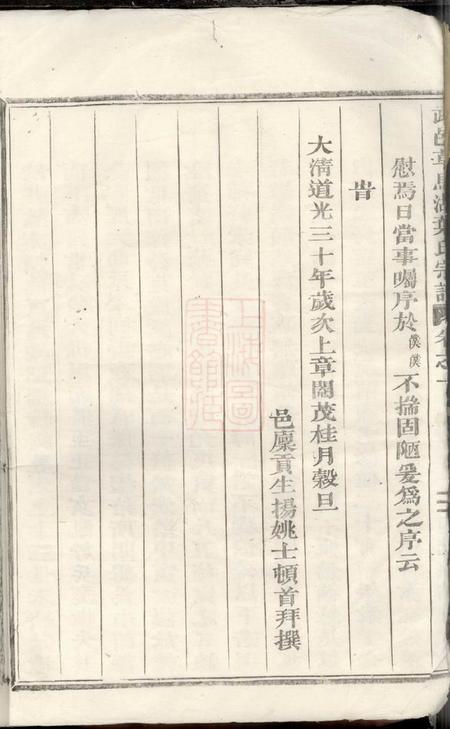 慰焉日當事囑序於僕僕不揣固陋爰爲之序云
旹
大清道光三十年歲次上章閹茂桂月穀旦
邑廩貢生揚姚士頓首拜撰
上海圖書館藏